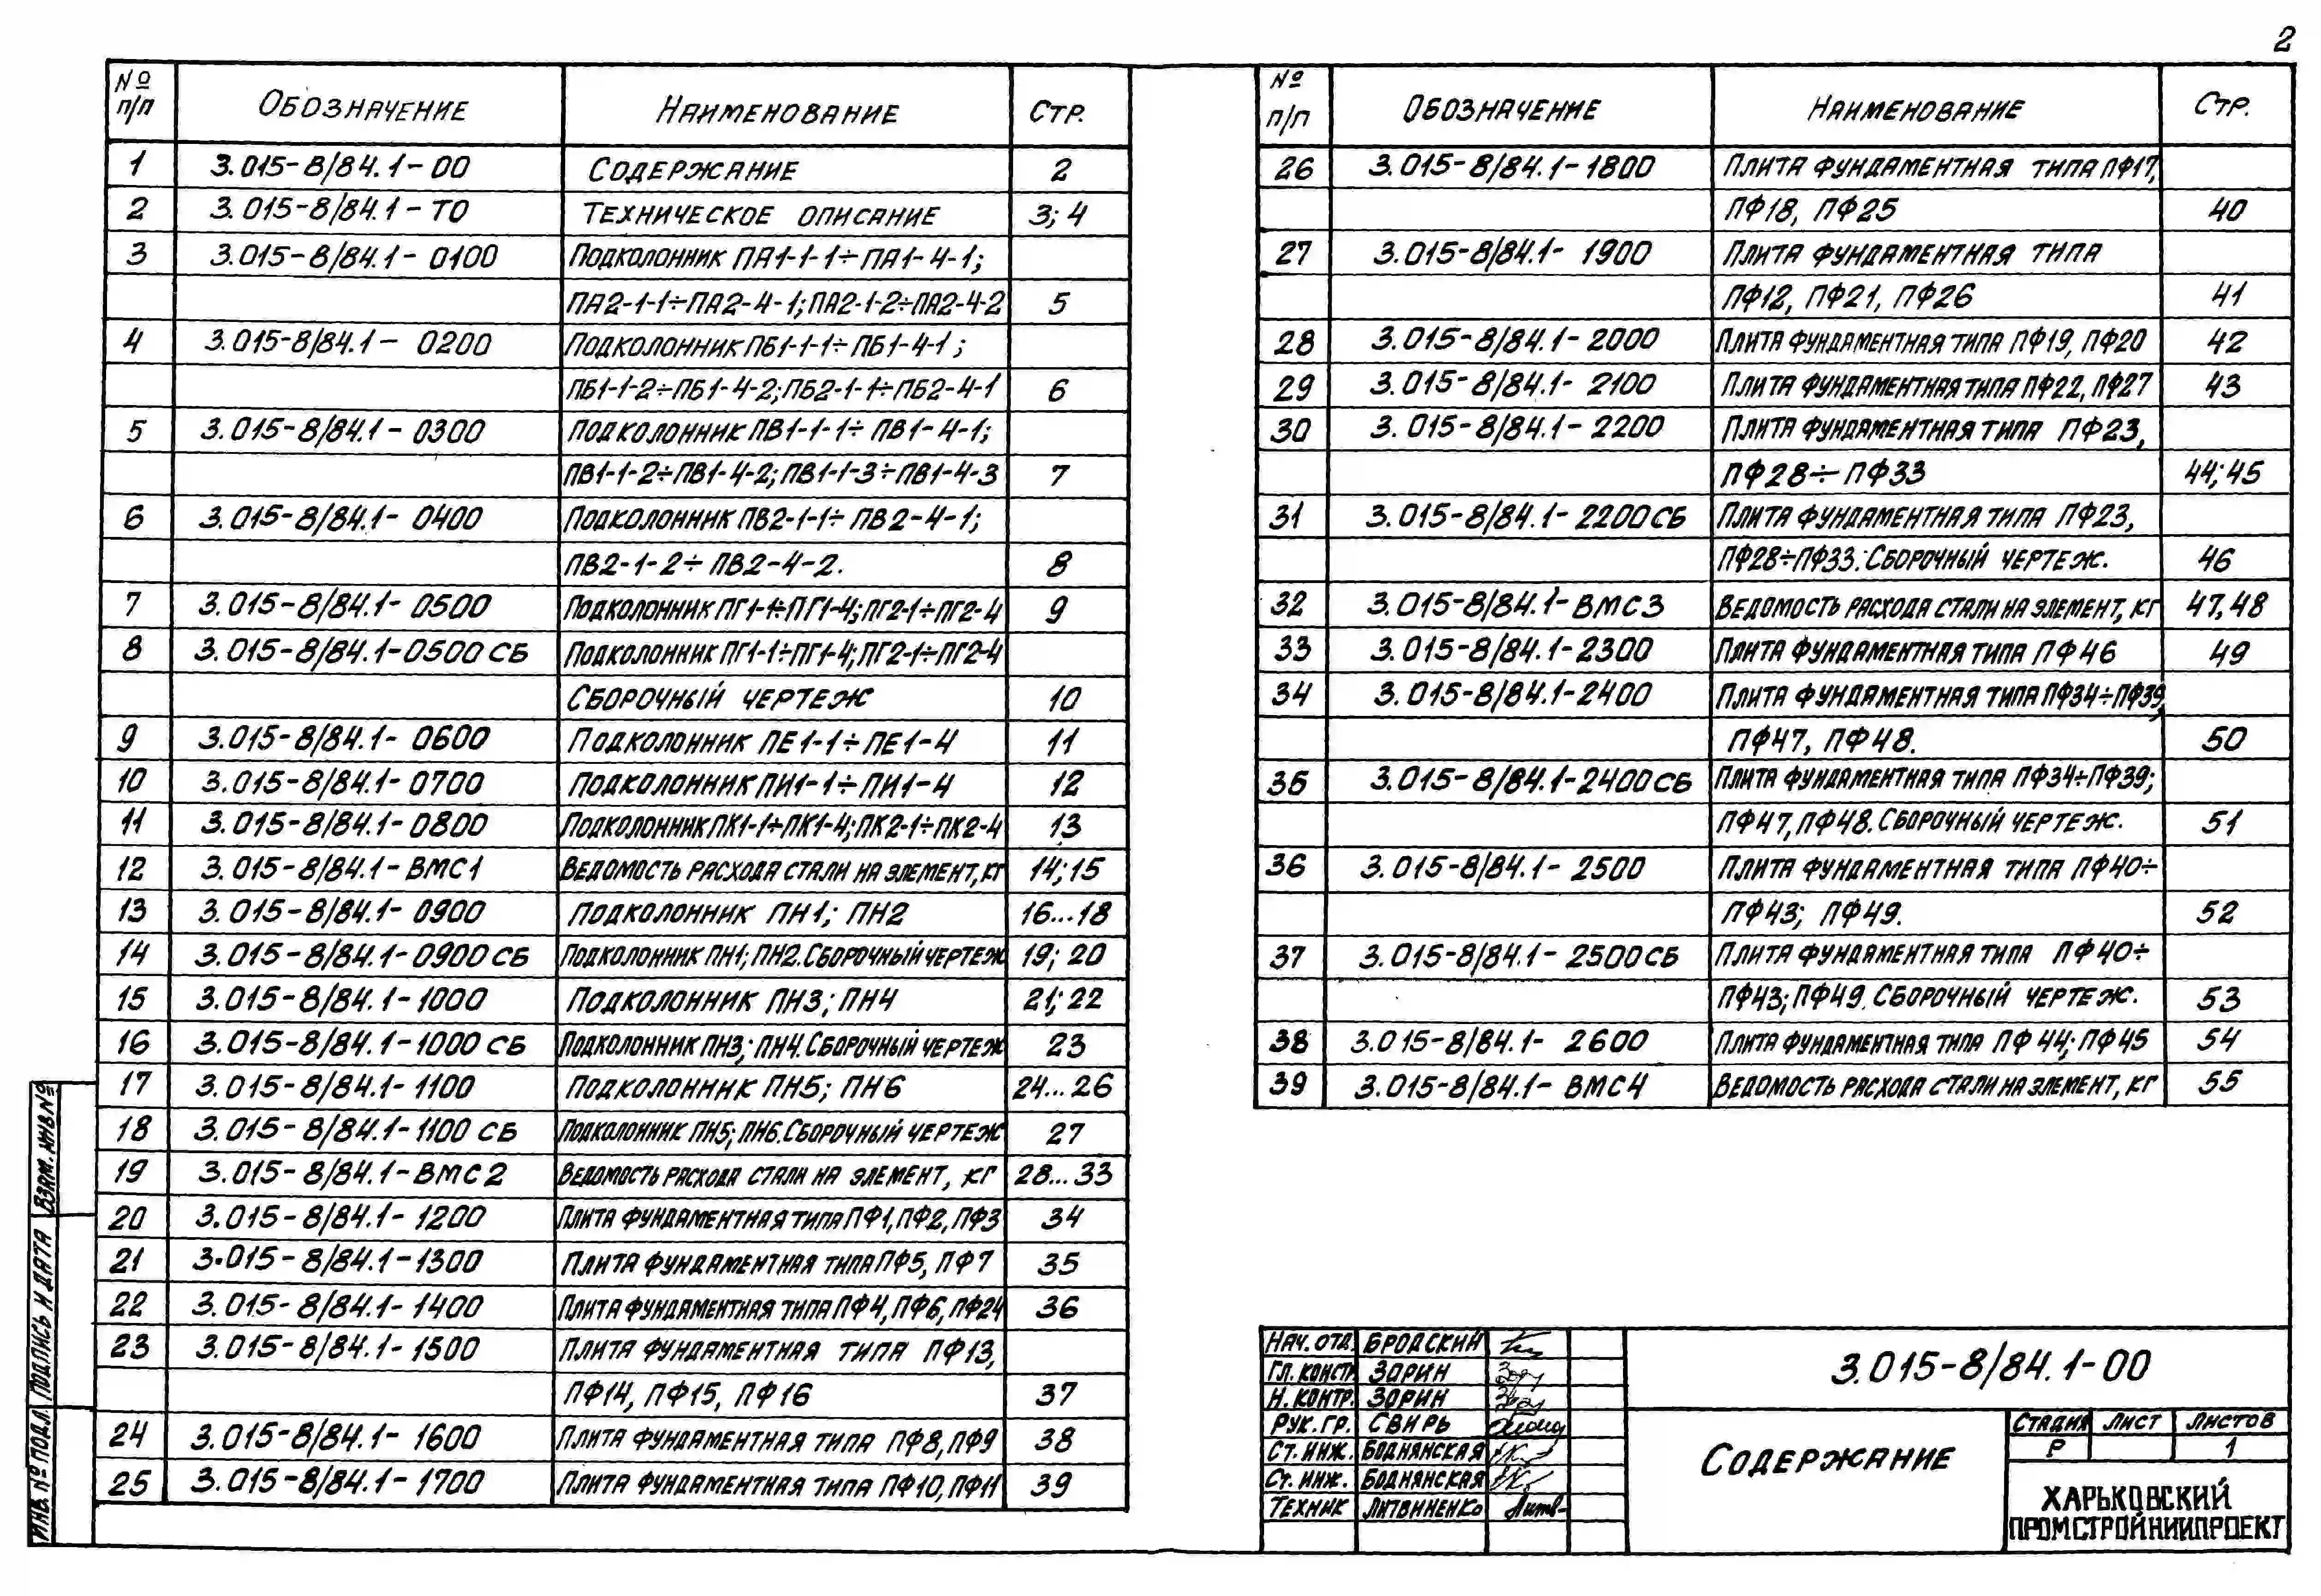 2
№ п/п Обозначение Наименование Стр.
1 3.015-8/84.1-00 Содержание 2
2 3.015-8/84.1-ТО Техническое описание 3; 4
3 3.015-8/84.1-0100 Подколонник ПА1-1-1÷ПА1-4-1;
ПА2-1-1÷ПА2-4-1; ПА2-1-2÷ПА2-4-2 5
4 3.015-8/84.1-0200 Подколонник ПБ1-1-1÷ПБ1-4-1;
ПБ1-1-2÷ПБ1-4-2; ПБ2-1-1÷ПБ2-4-1 6
5 3.015-8/84.1-0300 Подколонник ПВ1-1-1÷ПВ1-4-1;
ПВ1-1-2÷ПВ1-4-2; ПВ1-1-3÷ПВ1-4-3 7
6 3.015-8/84.1-0400 Подколонник ПВ2-1-1÷ПВ2-4-1;
ПВ2-1-2÷ПВ2-4-2. 8
7 3.015-8/84.1-0500 Подколонник ПГ1-1÷ПГ1-4; ПГ2-1÷ПГ2-4 9
8 3.015-8/84.1-0500СБ Подколонник ПГ1-1÷ПГ1-4; ПГ2-1÷ПГ2-4
Сборочный чертеж 10
9 3.015-8/84.1-0600 Подколонник ПЕ1-1÷ПЕ1-4 11
10 3.015-8/84.1-0700 Подколонник ПИ1-1÷ПИ1-4 12
11 3.015-8/84.1-0800 Подколонник ПК1-1÷ПК1-4; ПК2-1÷ПК2-4 13
12 3.015-8/84.1-ВМС1 Ведомость расхода стали на элемент, кг 14; 15
13 3.015-8/84.1-0900 Подколонник ПН1; ПН2 16...18
14 3.015-8/84.1-0900СБ Подколонник ПН1; ПН2. Сборочный чертеж 19; 20
15 3.015-8/84.1-1000 Подколонник ПН3; ПН4 21; 22
16 3.015-8/84.1-1000СБ Подколонник ПН3; ПН4. Сборочный чертеж 23
17 3.015-8/84.1-1100 Подколонник ПН5; ПН6 24...26
18 3.015-8/84.1-1100СБ Подколонник ПН5; ПН6. Сборочный чертеж 27
19 3.015-8/84.1-ВМС2 Ведомость расхода стали на элемент, кг 28...33
20 3.015-8/84.1-1200 Плита фундаментная типа ПФ1, ПФ2, ПФ3 34
21 3.015-8/84.1-1300 Плита фундаментная типа ПФ5, ПФ7 35
22 3.015-8/84.1-1400 Плита фундаментная типа ПФ4, ПФ6, ПФ24 36
23 3.015-8/84.1-1500 Плита фундаментная типа ПФ13,
ПФ14, ПФ15, ПФ16 37
24 3.015-8/84.1-1600 Плита фундаментная типа ПФ8, ПФ9 38
25 3.015-8/84.1-1700 Плита фундаментная типа ПФ10, ПФ11 39
№ п/п Обозначение Наименование Стр.
26 3.015-8/84.1-1800 Плита фундаментная типа ПФ17,
ПФ18, ПФ25 40
27 3.015-8/84.1-1900 Плита фундаментная типа
ПФ12, ПФ21, ПФ26 41
28 3.015-8/84.1-2000 Плита фундаментная типа ПФ19, ПФ20 42
29 3.015-8/84.1-2100 Плита фундаментная типа ПФ22, ПФ27 43
30 3.015-8/84.1-2200 Плита фундаментная типа ПФ23,
ПФ28÷ПФ33 44; 45
31 3.015-8/84.1-2200СБ Плита фундаментная типа ПФ23,
ПФ28÷ПФ33. Сборочный чертеж. 46
32 3.015-8/84.1-ВМС3 Ведомость расхода стали на элемент, кг 47, 48
33 3.015-8/84.1-2300 Плита фундаментная типа ПФ46 49
34 3.015-8/84.1-2400 Плита фундаментная типа ПФ34÷ПФ39,
ПФ47, ПФ48. 50
35 3.015-8/84.1-2400СБ Плита фундаментная типа ПФ34÷ПФ39;
ПФ47, ПФ48. Сборочный чертеж. 51
36 3.015-8/84.1-2500 Плита фундаментная типа ПФ40÷
ПФ43; ПФ49. 52
37 3.015-8/84.1-2500СБ Плита фундаментная типа ПФ40÷
ПФ43; ПФ49. Сборочный чертеж. 53
38 3.015-8/84.1-2600 Плита фундаментная типа ПФ44; ПФ45 54
39 3.015-8/84.1-ВМС4 Ведомость расхода стали на элемент, кг 55
Инв. № подл. Подпись и дата Взам. инв №
Нач. отд. Бродский
Гл. констр Зорин
Н. контр. Зорин
Рук. гр. Свирь
Ст. инж. Боднянская
Ст. инж. Боднянская
Техник Литвиненко
3.015-8/84.1-00
Содержание
Стадия Лист Листов
Р 1
ХАРЬКОВСКИЙ
ПРОМСТРОЙНИИПРОЕКТ